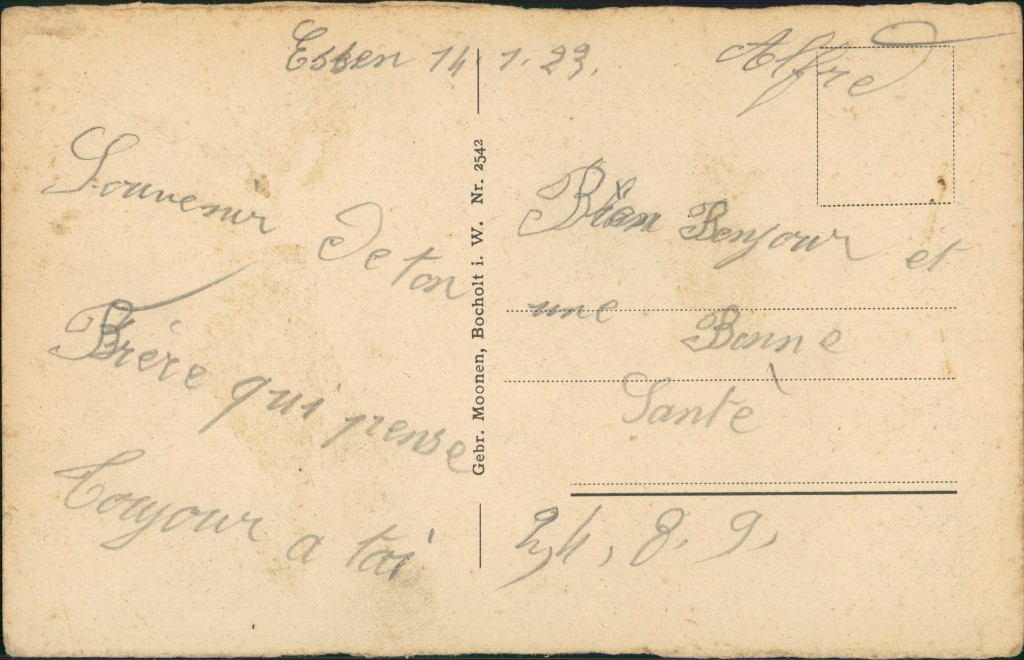 Essen 14 1. 23.
Alfred
Souvenir
De ton
Frère qui pense
Toujour a toi
Gebr. Moonen, Bocholt i. W. Nr. 2542
Bien Bonjour et
une Bonne
Santè
24, 8. 9,